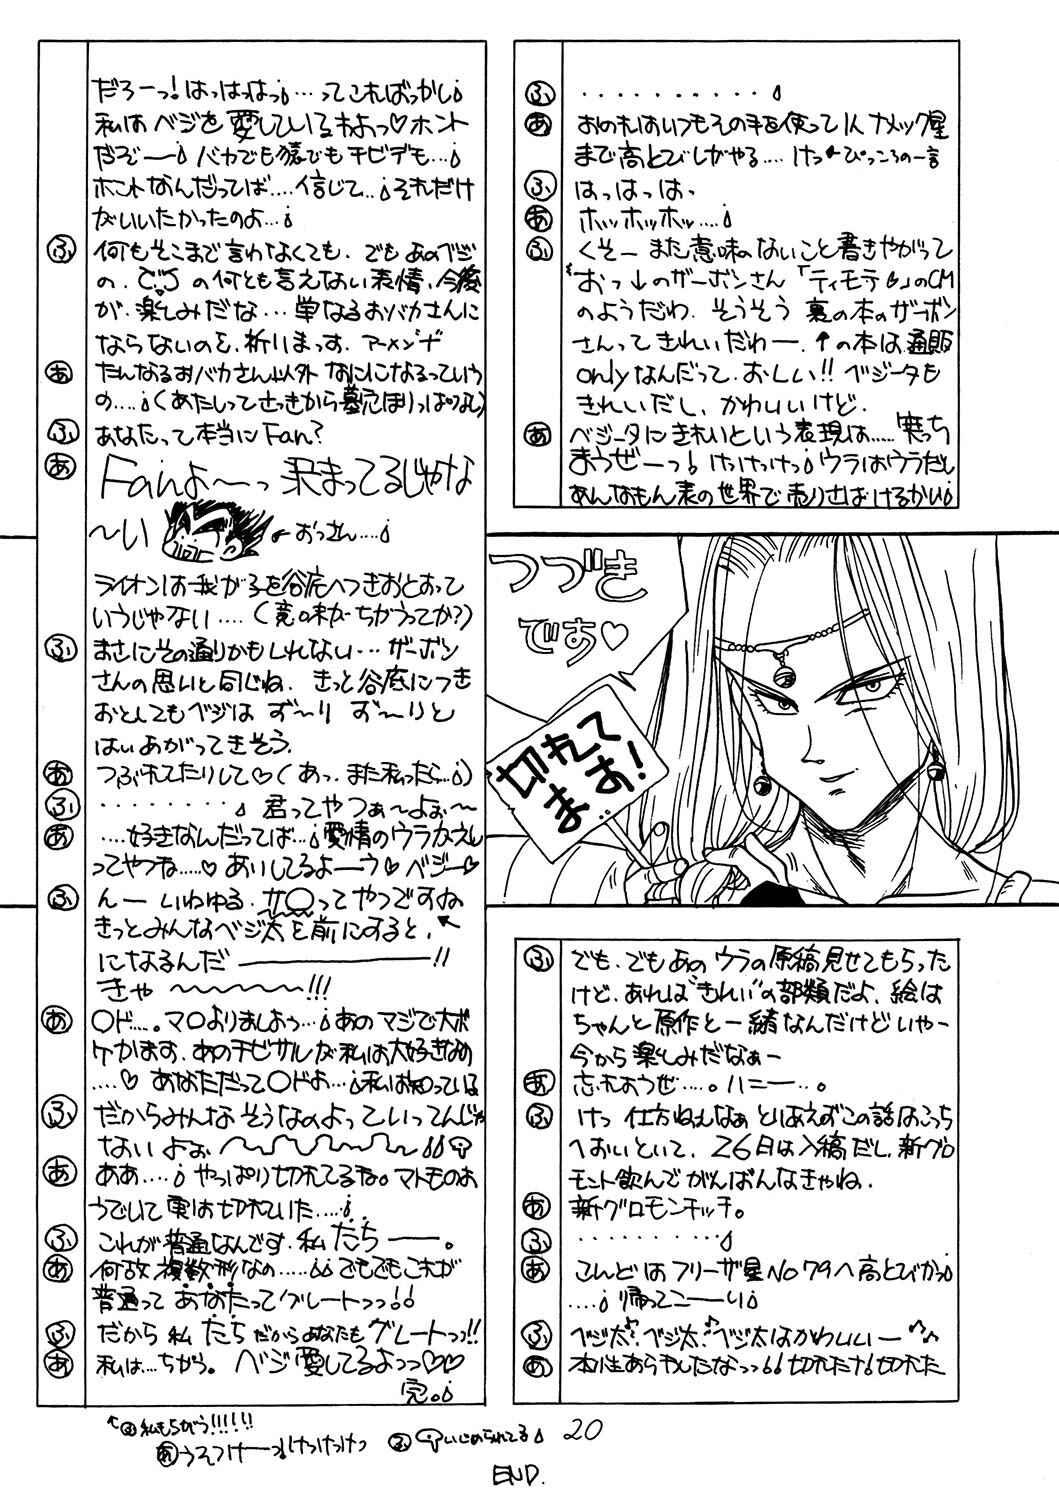 だろーっ!はっはっはっ…ってこればっかし
私はベジを愛しているわよっ♡ホント
だぞー バカでも猿でもチビデも…
ホントなんだってば‥‥信じて…それだけ
がいいたかったのよ…
ふ 何もそこまで言わなくても、でもあのベジ
の、の何とも言えない表情、今後
が、楽しみだな… 単なるおバカさんに
ならないのを、祈りまっす、アーメンザ
あ たんなるおバカさん以外なにになるっていう
の‥‥(あたしってさっきから墓穴ほりっぱなし)
ふ あなたって本当にFan?
あ Fanよ〜っ 決まってるじゃな
〜い ←おっさん‥‥
ライオンは我が子を谷底へつきおとすって
いうじゃない‥‥(意味がちがうってか?)
ふ まさにその通りかもしれない…ザーボン
さんの思いと同じね、きっと谷底につき
おとしてもベジは ず〜り ず〜りと
はいあがってきそう、
あ つぶれてたりして♡(あっ、また私ったら…)
ふ ・・・・・・・・ 君ってやつぁ〜よぉ〜
あ ‥‥好きなんだってば…愛情のウラがえし
ってやつね‥‥♡あいしてるよーウ♡ベジー♡
ふ んー いわゆる、サ○ってやつですね
きっとみんなベジ太を前にすると、
になるんだ――!!
きゃ〜〜〜〜!!!
あ ○ド‥‥。マ○よりましよぅ…あのマジで大ボ
ケかます、あのチビサルが私は大好きなの
‥‥♡ あなただって○ドよ…私は知っている
ふ だからみんなそうなのよっていってんじゃ
ないよぉ、〜〜〜〜
あ ああ‥‥やっぱり切れてるな。マトモのよ
うでいて実は切れていた‥‥
ふ これが普通なんです、私たちー。
あ 何故複数形なの‥‥‥でもでもこれが
普通って あなたってグレートっっ!!
ふ だから私たちだからあなたもグレートっっ!!
あ 私は…ちがう。ベジ愛してるよっっ♡♡
完。
↑ふ私もちがう!!!!!!
あうそつけーっけっけっけっ
ふいじめられてる
ふ ・・・・・・・・・・・
あ おのれはいつもその手を使って1人ナメック星
まで高とびしがやる‥‥けっ←ぴっころの一言
ふ はっはっは、
あ ホッホッホッ‥‥
ふ くそー また意味のないこと書きやがって
おっ↓のザーボンさん「ティモテ」のCM
のようだわ、そうそう 裏の本のザーボン
さんってきれいだわー、↑の本は通販
onlyなんだって、おしい!!ベジータも
きれいだし、かわいいけど、
あ ベジータにきれいという表現は‥‥笑っち
まうぜーっ!けっけっけっウラはウラだし
あんなもん表の世界で売りさばけるかい
つづき
です♡
切れて
ます!
ふ でも、でもあのウラの原稿見せてもらった
けど、あれは"きれい"の部類だよ、絵は
ちゃんと原作と一緒なんだけどいやー
今から楽しみだなぁー
あ 忘れようぜ‥‥。ハニー‥。
ふ けっ 仕方ねえなぁ とはあえずこの話はこっち
へおいといて、26日は入稿だし、新グロ
モント飲んでがんばんなきゃね、
あ 新グロモンチッチ。
ふ ・・・・・・・・・
あ こんどはフリーザ星No79へ高とびかっ
‥‥帰ってこーい
ふ ベジ太♪、ベジ太♪ベジ太はかわいいー♪
あ 本性あらわしたなっっ切れた!切れた
20
END.